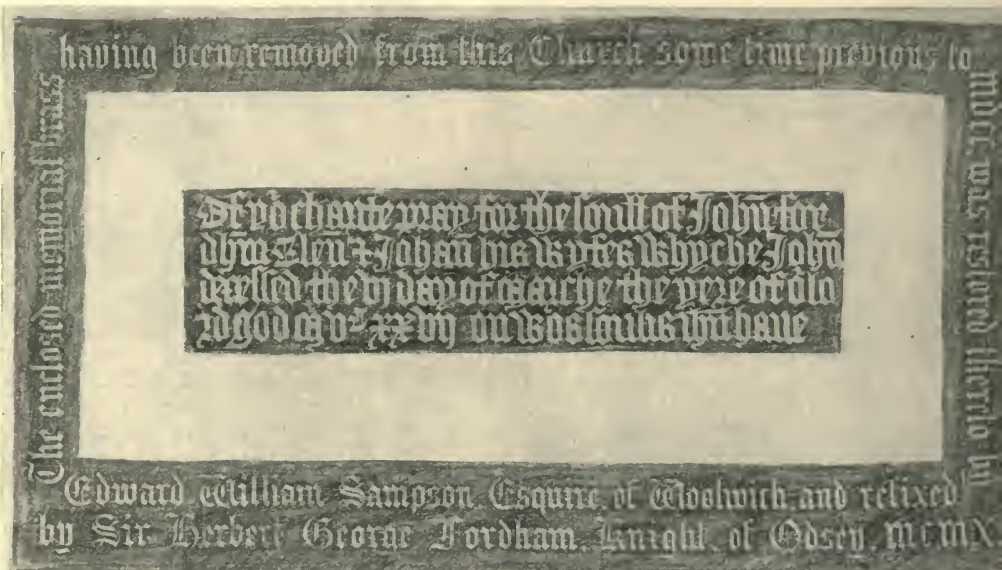 The enclosed memorial brass
having been removed from this Church some time previous to
MDCC was restored thereto by
Edward William Sampson Esquire of Woolwich and refixed
by Sir Herbert George Fordham, Knight, of Odsey, MCMX.
Of yoʳ charyte pray for the soull of John for
dhm̄ Elen & Johan his wyfes whyche John
decessed the vj day of marche the yere of oʳ lo
rd god m vᶜ xx vij on whos soulis ihu have